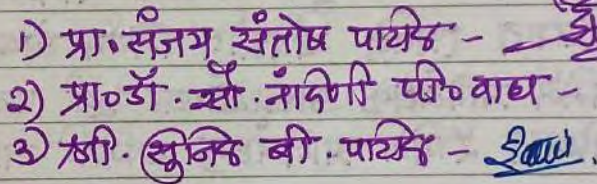 १) प्रा. संजय संतोष पाटील -
२) प्रा० डॉ. सौ. नंदिनी पी० वाघ -
३) श्री. सुनिल बी. पाटील -